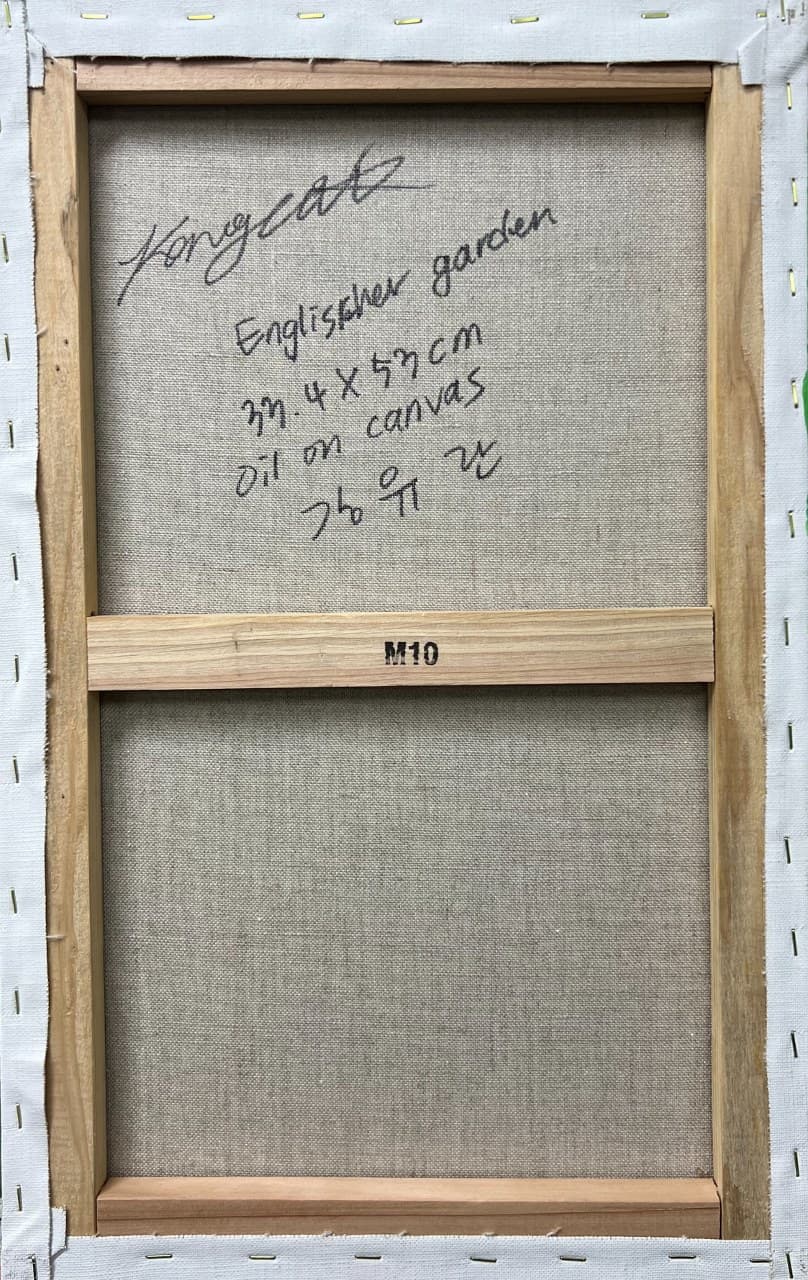 Kongcat
Englischer garden
33.4 X 53 cm
oil on canvas
강유란
M10